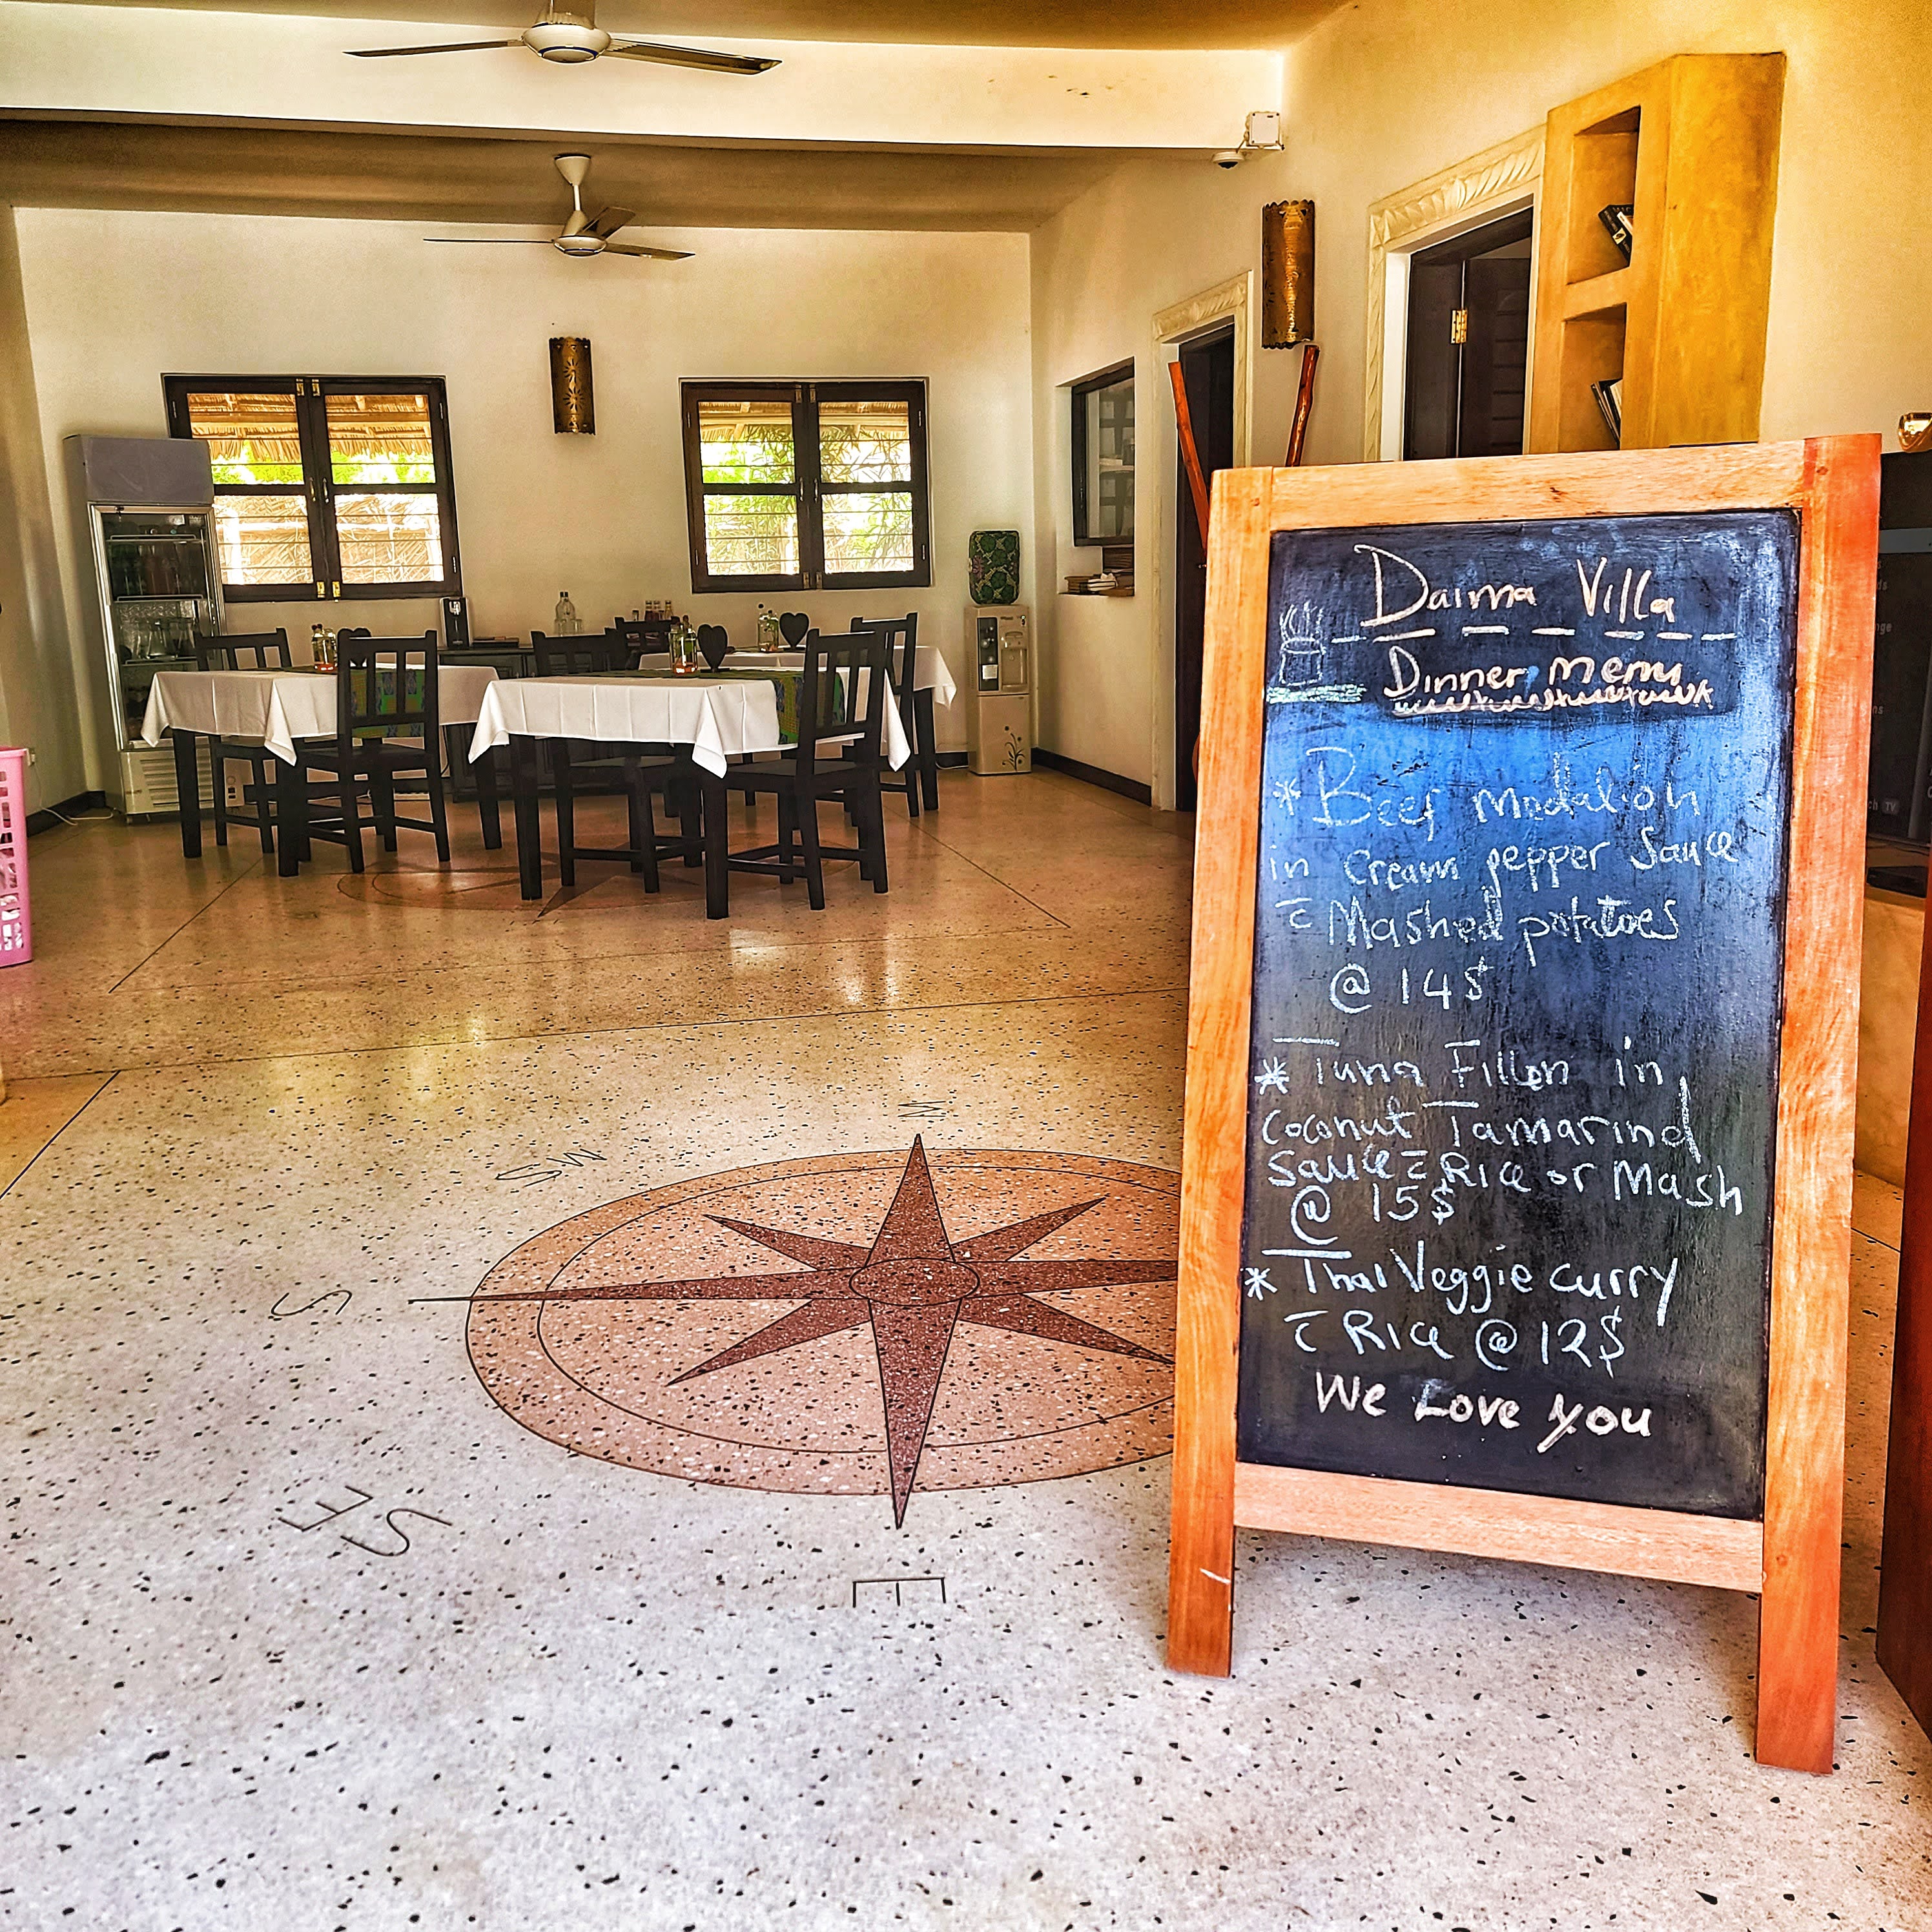 Daima Villa
Dinner Menu
* Beef Medalion
in Cream pepper Sauce
c̄ Mashed potatoes
@ 14$
* Tuna Fillen in
Coconut Tamarind
Sauce c̄ Rice or Mash
@ 15$
* Thai Veggie curry
c̄ Rice @ 12$
We Love you
W
SW
S
SE
E